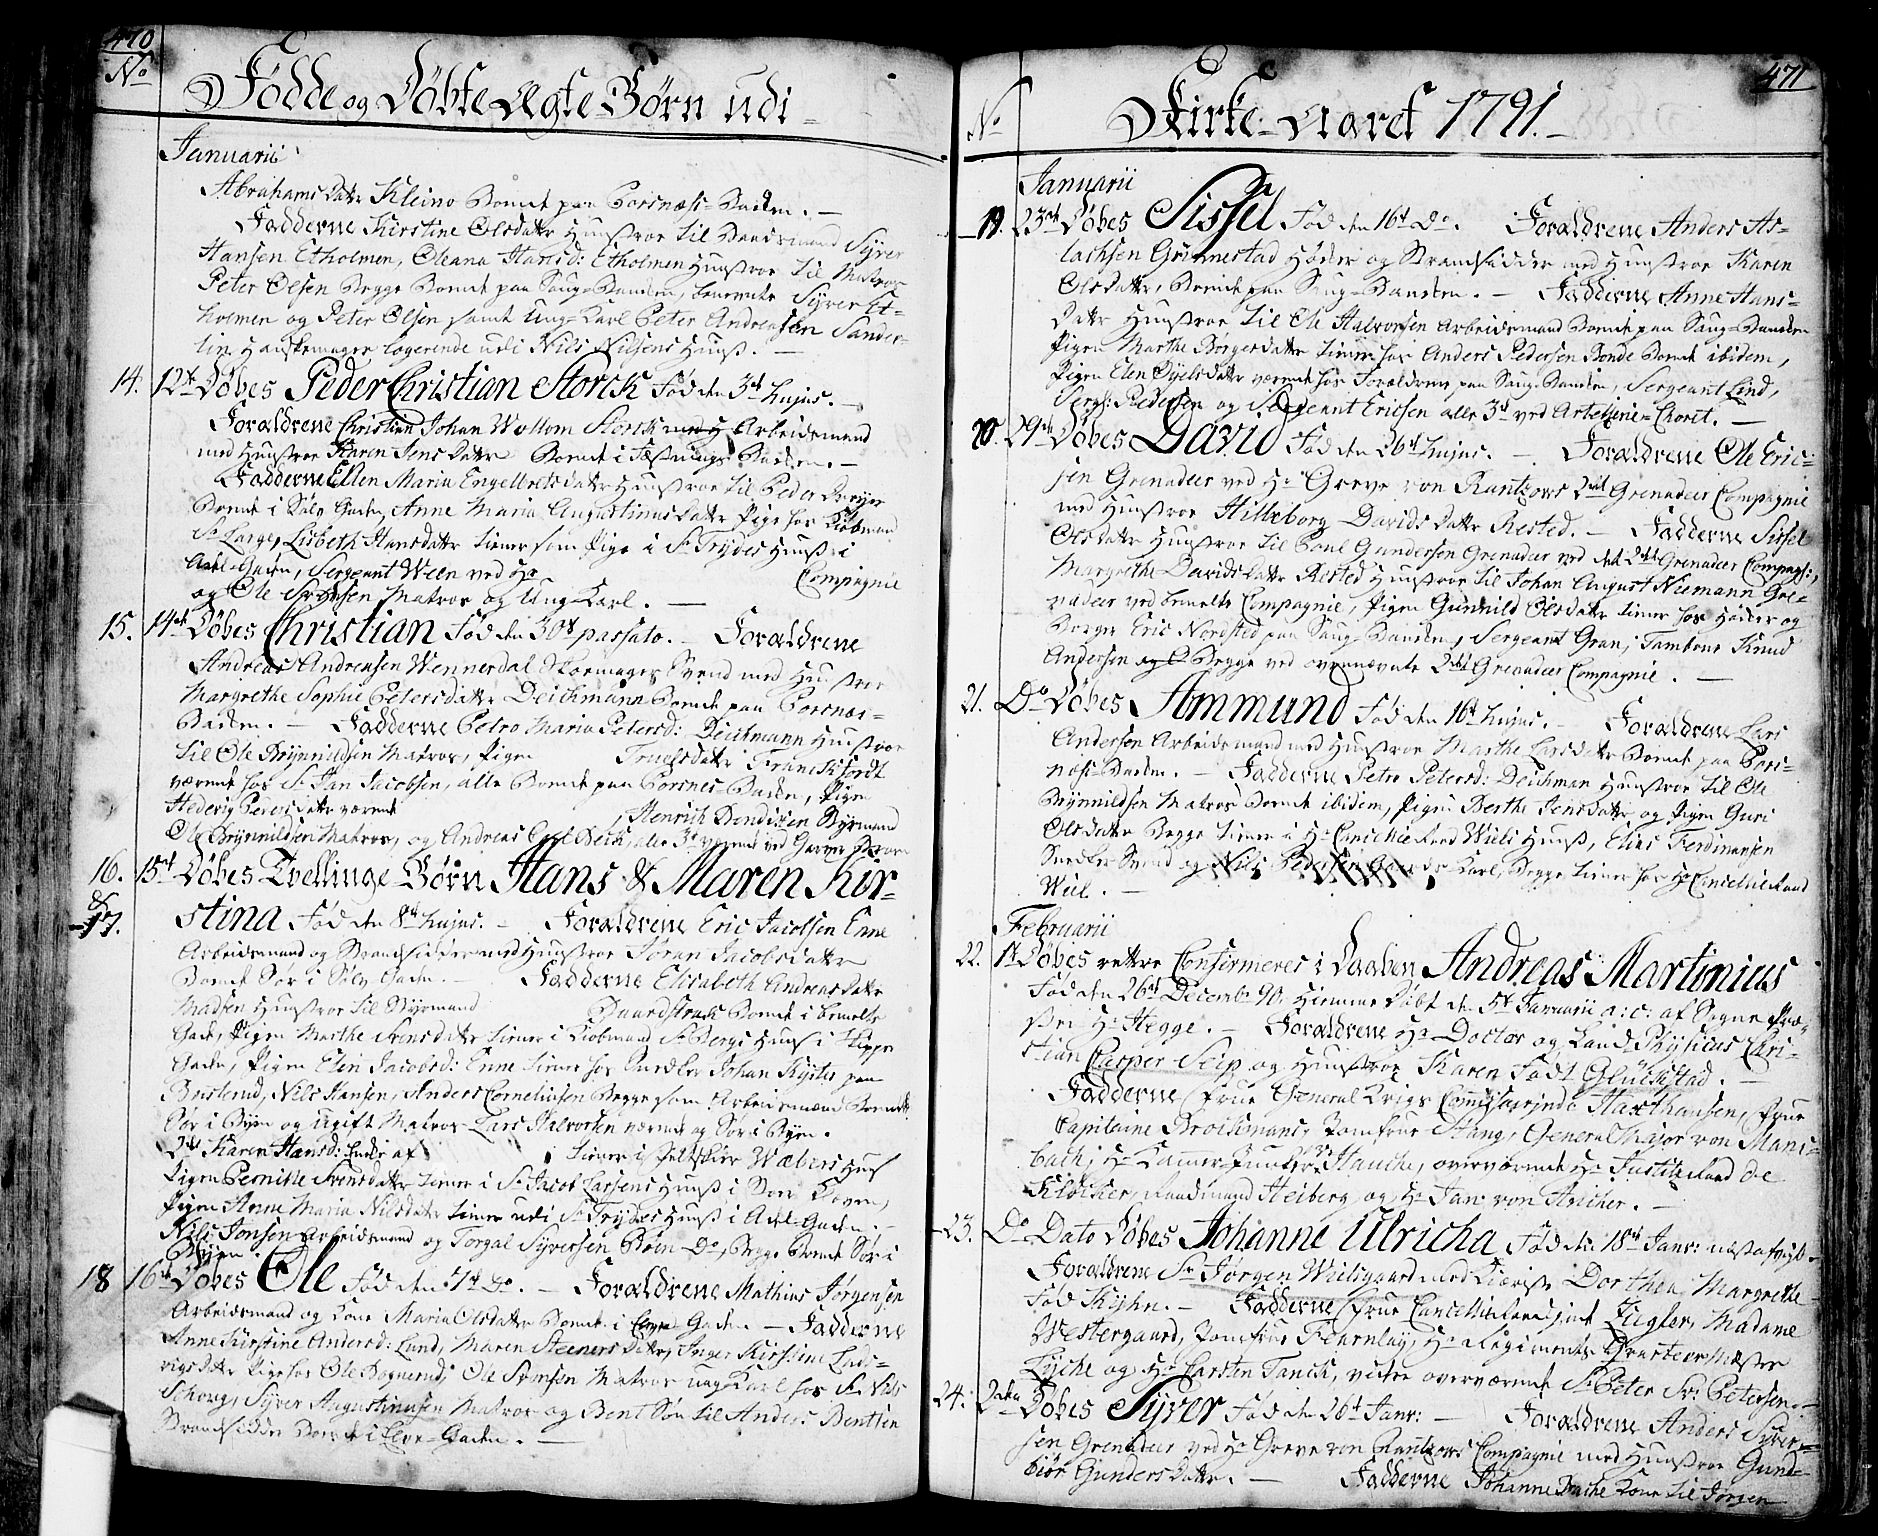 470
No
Fødde og Døbte Ægte Børn udi
Januarii
Abrahams Datter Kleino Boende paa Porsnæss Bakken. —
Fadderne Kirstine Olsdatter Hustroe til Baadsmand Syver
Hansen Etholmen, Oleana Hansd: Etholmen Hustroe til Matros
Peter Olsen begge Boende paa Saug-Banken, benevnte Syver Et-
holmen og Peter Olsen samt Ung-Karl Peter Andreasen Sander-
lin Handskemager logerende udi Nils Nilsens Huus. —
14. 12te Døbes Peder Christian Storck Fød den 3d hujus. —
Forældrene Christian Johan Wollom Storck Arbeidsmand
med Hustroe Karen Jens Datter Boende i Fæstnings Banken. —
Fadderne Ellen Maria Engelbretsdatter Hustroe til Peder
Boende i Sølv Gaden, Anne Maria Augustinusdatter Pige hos Kiøbmand
Sr Large, Lisbeth Hansdatter tiener som Pige i Sr Trydes Huus i
Adel-Gaden, Sergeant Ween ved Hr Compagnie
og Ole Matros og Ung Karl. —
15. 14de Døbes Christian Fød den 30t passato. — Forældrene
Andreas Andreasen Wennerdal Skomager Svend med Hustroe
Margrethe Sophie Petersdatter Deichmann Boende paa Porsnes-
Bakken. — Fadderne Petro Maria Petersd: Deichmann Hustroe
til Ole Brynnildsen Matros, Pigen Truelsdatter Franckfordt
værende hos Sr Jan Jacobsen, alle Boende paa Porsnes Bakken, Pigen
Hedevig Pedersdatter værende Henrich Bendixen Byemand
Ole Brynnildsen Matros, og Andreas alle 3de værende ved
16. 15de Døbes Tvellinge-Børn Hans & Maren Kir-
& 17. stina Fød den 8de hujus. — Forældrene Eric Jacobsen Enne
Arbeidsmand og Strandsidder med Hustroe Jøran Jacobsdatter
Boende Sør i Sølv Gaden. — Fadderne Elisabeth Andreasdatter
Madsen Hustroe til Byemand Boende i bemelte
Gade, Pigen Marthe Svensdatter tiener i Kiøbmand Sr Bergs Huus i
Gaden, Pigen Elen Jacobsd: Enne tiener hos Snedker Johan paa
Busterud, Nils Hansen, Anders Corneliusen Begge som Arbeidsmænd Boende
Sør i Byen og ugift Matros Lars Halvorsen værende og Sør i Byen.
Karen Hansd: tiener i Wæbers Huus
Pigen Pernille Svensdatter tiener i Sr Jacob Larsens Huus i
Pigen Anne Maria Nilsdatter tiener udi Sr Trydes Huus i Adel-Gaden. —
Nils Jonsen Arbeidsmand og Torgal Syversen Do, Begge Boende Sør i
Byen.
18 16de Døbes Ole Fød den 7d Do. — Forældrene Mathius Jørgensen
Arbeidsmand og Kone Maria Olsdatter Boende i Gaden — Fadderne
Anne Kirstine Andersd: Lund, Maren Steenersdatter, Inger Kirstine Luds-
vigsdatter Pige hos Ole Ole Svensen Matros ung Karl hos Sr Nils
Schong, Syver Augustinusen Matros og Bent Søn til Anders Bentsen
Strandsidder Boende i Elve-Gaden. —
471
No
Kirke-Aaret 1791. —
Januarii
19. 23de Døbes Sissel Fød den 16d Do. Forældrene Anders As-
lachsen Grimestad Høker og Strandsidder med Hustroe Karen
Olsdatter, Boende paa Saug-Banken. — Fadderne Anne Hans-
datter Hustroe til Ole Halvorsen Arbeidsmand Boende paa Saug-Banken
Pigen Marthe Borgersdatter tiener hos Anders Pedersen Bonde Boende ibidem,
Pigen Elen datter værende hos Forældrene paa Saug-Banken, Sergeant Lind,
Serg: Pedersen og Sergeant Ericsen alle 3de ved Artellerie-Choret. —
20. 29de Døbes David Fød den 26d hujus. — Forældrene Ole Eric-
sen Grenadeer ved Hr Greve von Rantzows 2det Grenadeer Compagnie
med Hustroe Hilleborg Davidsdatter Rested. — Fadderne Sissel
Olsdatter Hustroe til Paul Gundersen Grenadeer ved det 2det Grenadeer Compagn:,
Margrethe Davidsdatter Rested Hustroe til Johan August Niemann Gre-
nadeer ved bemelte Compagnie, Pigen Gunnild Olsdatter tiener hos Høker og
Borger Eric Nordsted paa Saug-Banken, Sergeant Gran, Tambour Knud
Andersen Begge ved ovennævnte 2det Grenadeer Compagnie. —
21. Do Døbes Ammund Fød den 16d hujus. — Forældrene Lars
Andersen Arbeidsmand med Hustroe Marthe Larsdatter Boende paa Pors-
næs-Bakken. — Fadderne Petro Petersd: Deichman Hustroe til Ole
Brynnildsen Matros Boende ibidem, Pigen Berthe Jensdatter og Pigen Guri
Olsdatter Begge tiener i Hr Cancellie Raad Wiels Huus, Elias Ferdinansen
Snedker Svend og Nils Pedersen Gaards-Karl, Begge tiener hos Hr Cancellie Raad
Wiel. —
Februarii
22. 1t Døbes rettere Confirmeres i Daaben Andreas Martinius
Fød den 26d Decembr 90. Hiemme Døbt den 5d Januarii a: c: af Sogne Præ-
sten Hr Hegge. — Forældrene Hr Doctor og Land Physicus Chri-
stian Casper Seip og Hustroe Karen Født Glückstad. —
Fadderne Frue General Krigs Commissairinde Haxthausen, Frue
Capitaine Brochmans, Jomfrue Stang, General Major von Mans-
bach, Hr Kammer Junker von Hauche, overværende Hr Justits Raad De
Klocker, Raadmand Heiberg og Hr Jan von Ancher. —
23. Do Dato Døbes Johanne Ulricha Fød den 18de Janr: næstafvigt.
Forældrene Sr Jørgen Wielsgaard med Kiæriste Dorthea Margrethe
Fød Kyhn. — Fadderne Frue Cancellie Raadsinde Ziegler, Madame
Westergaard, Jomfrue Fearnlay, Hr Regiments Qvarteermester
Lyche og Hr Carsten Tanck, videre overværende Sr Peter Sr: Petersen. —
24. 2den Døbes Syver Fød den 26d Janr: — Forældrene Anders Syver-
sen Grenadeer ved Hr Greve von Rantzows Compagnie med Hustroe Gund-
biør Gundersdatter. — Fadderne Johanne Kone til Jørgen